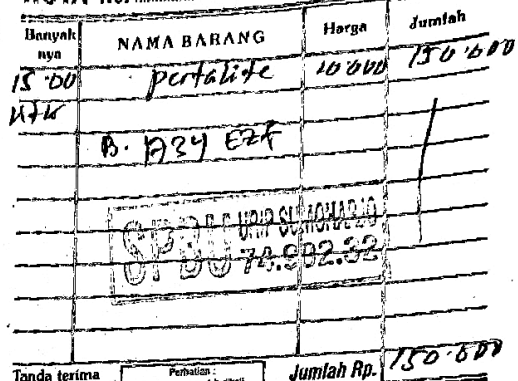 Banyak nya NAMA BARANG Harga Jumlah
15.00 pertalite 10.000 150.000
B. 1734 EZF
SPBU URIP SUMOHARJO
74.902.32
Tanda terima Perhatian : Jumlah Rp. 150.000